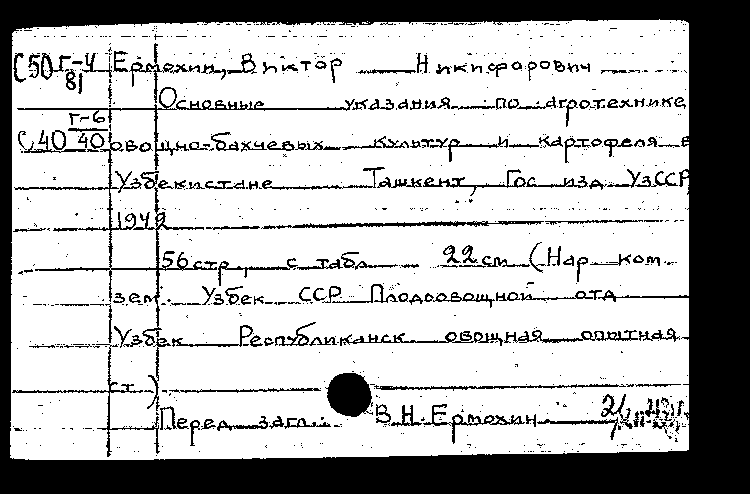 С50 Г-4/81 Ермохин, Виктор Никифарович
Основные указания по агротехнике
С40 Г-6/40 овощно-бахчевых культур и картофеля в
Узбекистане Ташкент, Гос изд УзССР,
1942
56 стр., с табл 22 см (Нар ком.
зем. Узбек ССР Плодоовощной отд
Узбек Республиканск овощная опытная
ст.)
Перед загл.: В.Н. Ермохин